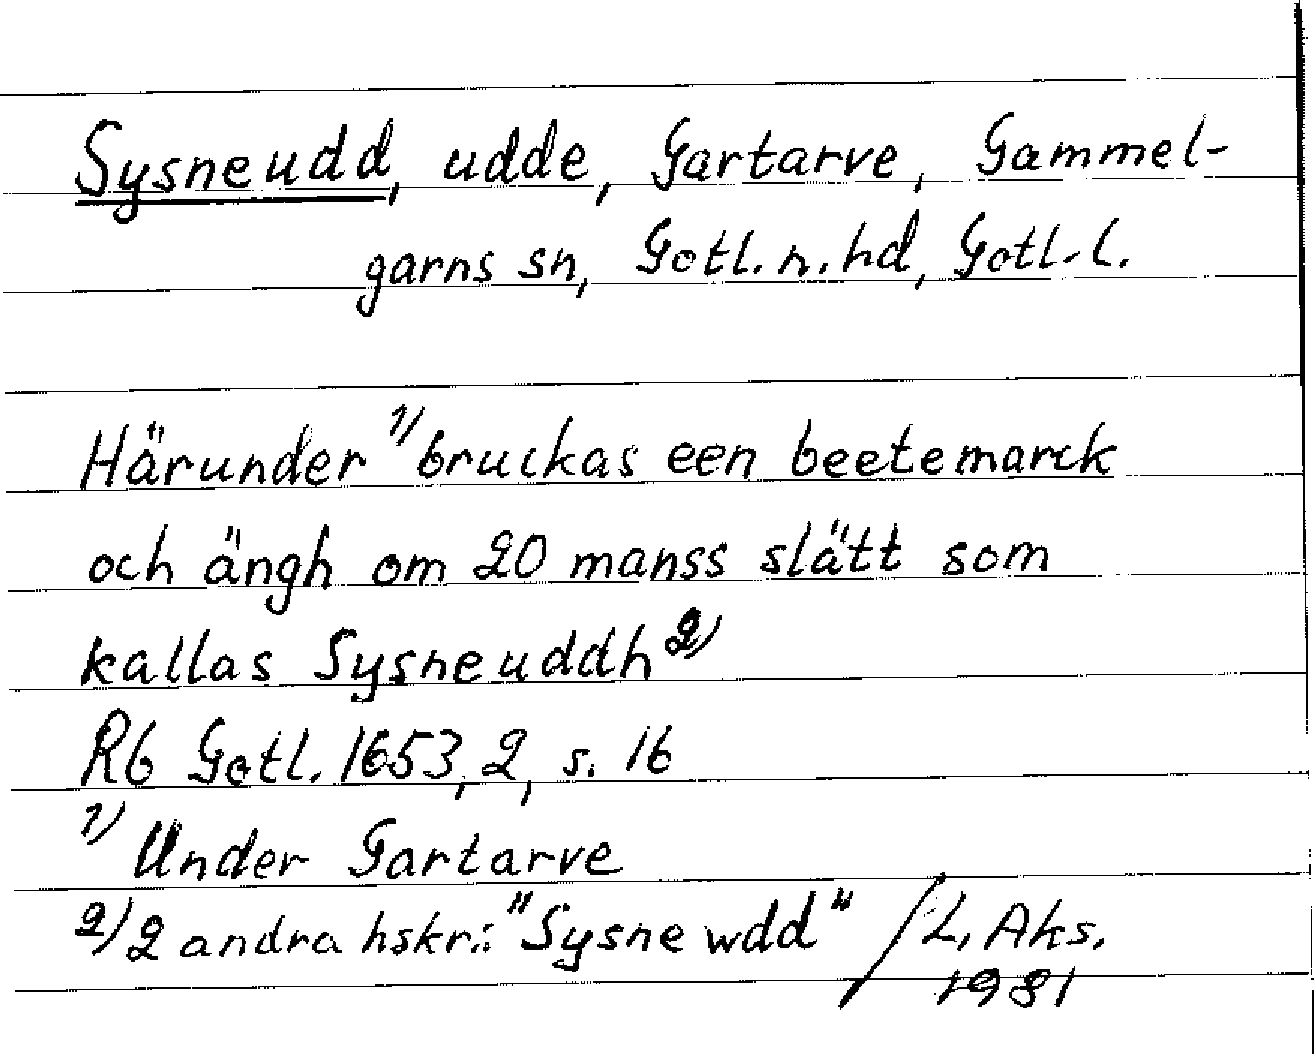 Sysneudd, udde, Gartarve, Gammel-
garns sn, Gotl. n. hd, Gotl. l.
Härunder 1) bruckas een beetemarck
och ängh om 20 manss slätt som
kallas Sysneuddh 2)
Rb Gotl. 1653, 2, s. 16
1) Under Gartarve
2) 2 andra hskr.: "Sysne wdd" / L. Aks.
1981